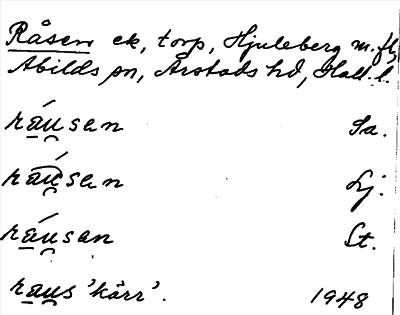 Råsen ek, torp, Hjuleberg m.fl,
Abilds sn, Årstads hd, Hall. l.
ráu̯san Sa.
ráu̯san Lj.
ráu̯san St.
rau̯s 'kärr'. 1948